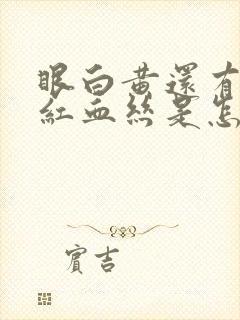 眼白黄還有
紅血絲是怎
賓吉